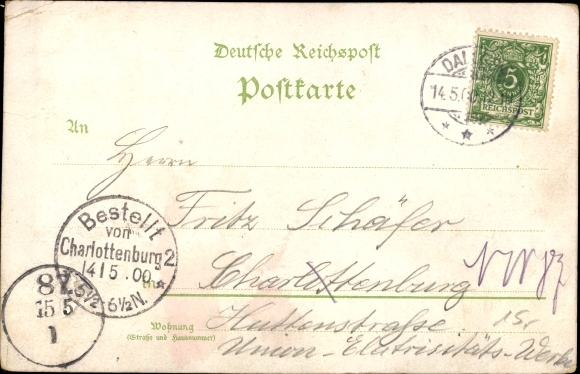 Deutsche Reichspost
Postkarte
DAL
14.5.00
5
REICHSPOST
An
Herrn
Fritz Schäfer
Bestellt
von
Charlottenburg 2
14/5.00.
5½-6½N.
in Charlottenburg
NW 87
87
15 5
1
Huttenstraße 15.
Wohnung
(Straße und Hausnummer)
Union-Elektrisitäts-Werke